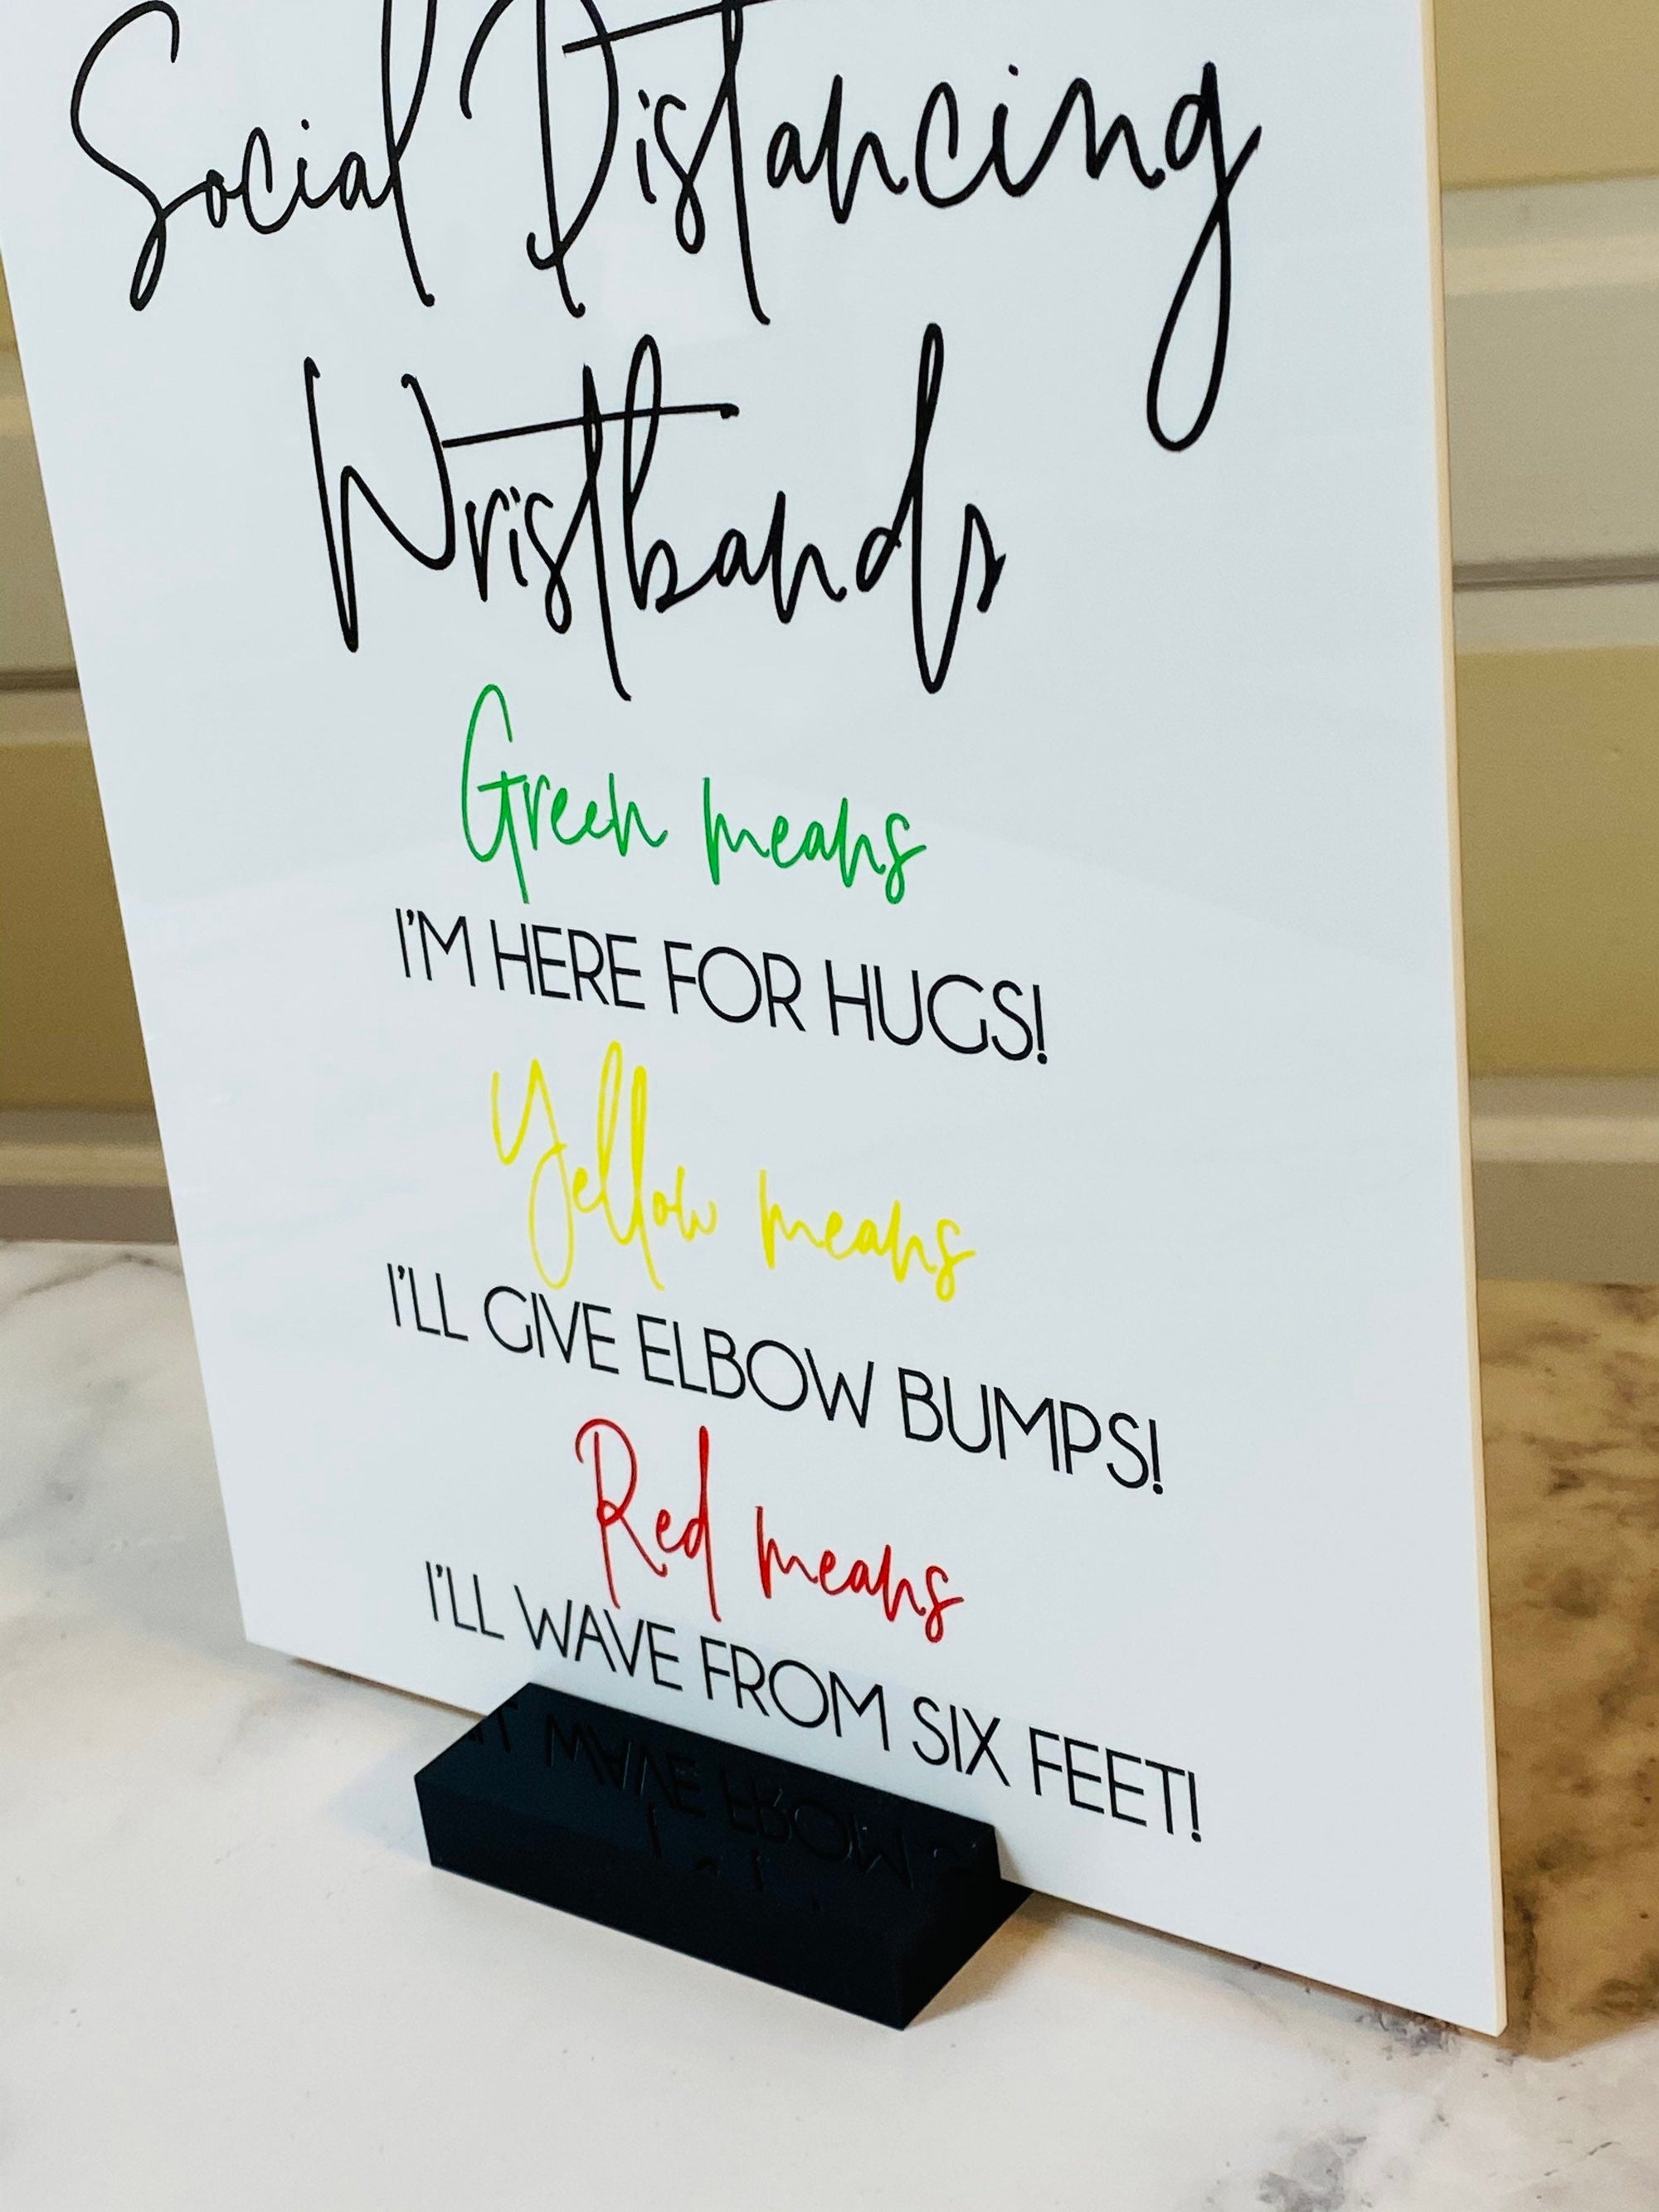 Social Distancing
Wristbands
Green means
I'M HERE FOR HUGS!
Yellow means
I'LL GIVE ELBOW BUMPS!
Red means
I'LL WAVE FROM SIX FEET!